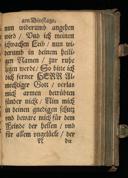 am Dinstage.
nun widerumb angehen
wird / Und ich meinen
schwachen Leib / nun wi-
derumb in deinem heili-
gen Namen / zur ruhe
legen werde / So bitte ich
dich ferner HERR Al-
mechtiger Gott / verlas
mich armen betrübten
sünder nicht / Nim mich
in deinen gnedigen schutz
und beware mich für dem
Feinde der hellen / und
für allem ungelücke / der